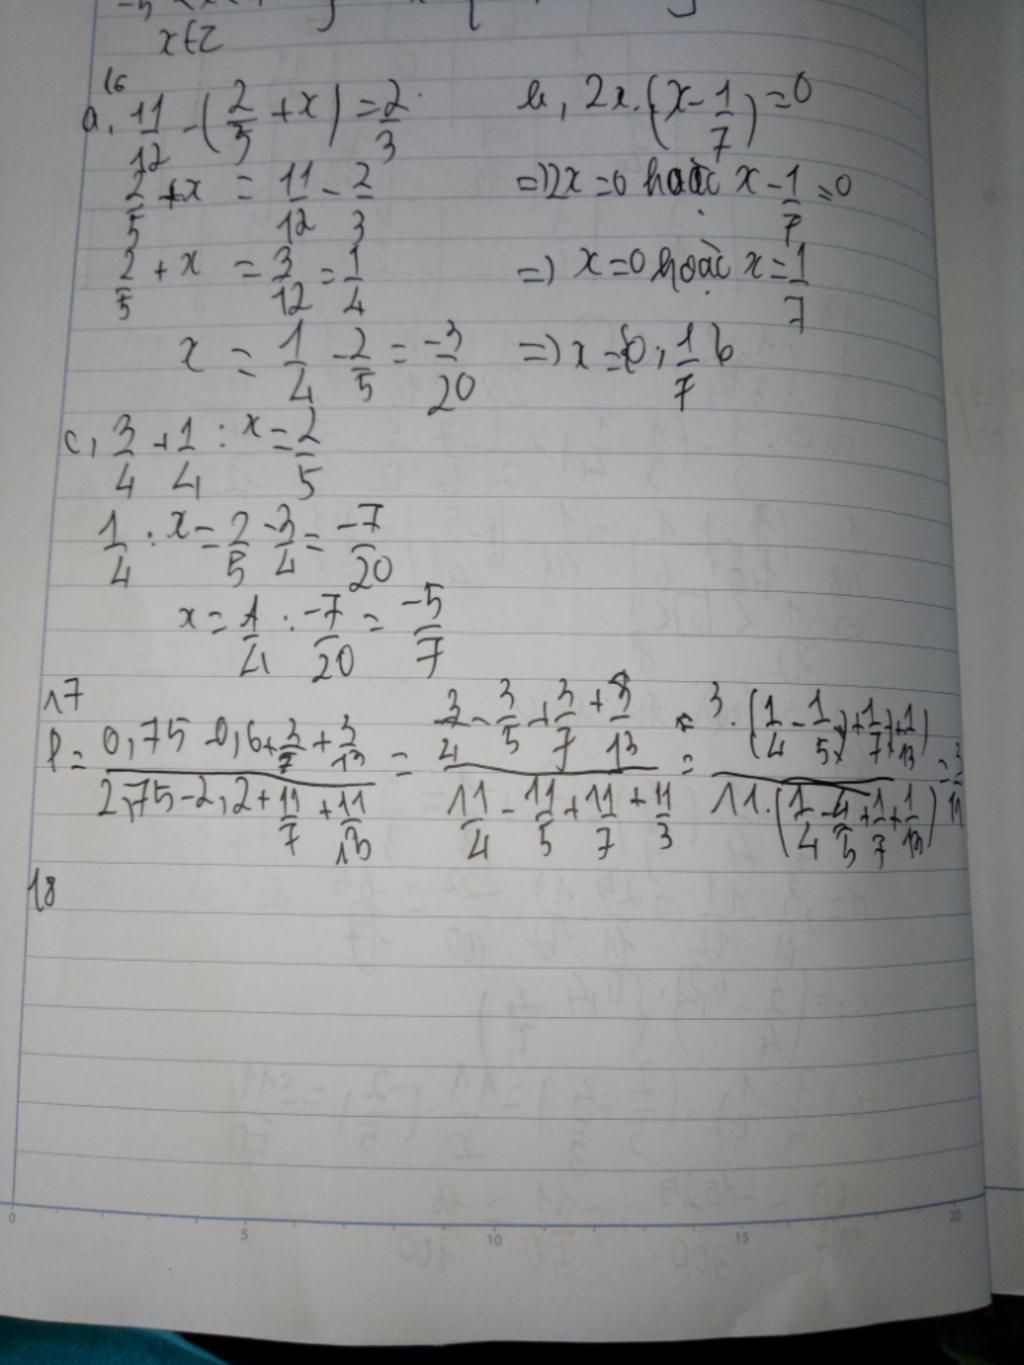 x∈Z
16
a, 11/12 - (2/5 + x) = 2/3
2/5 + x = 11/12 - 2/3
2/5 + x = 3/12 = 1/4
x = 1/4 - 2/5 = -3/20
b, 2x.(x - 1/7) = 0
=> 2x = 0 hoặc x - 1/7 = 0
=> x = 0 hoặc x = 1/7
=> x = {0, 1/7}
c, 3/4 + 1/4 : x = 2/5
1/4 : x = 2/5 - 3/4 = -7/20
x = 1/4 : -7/20 = -5/7
17
P = (0,75 - 0,6 + 3/7 + 3/13)/(2,75 - 2,2 + 11/7 + 11/13) = (3/4 - 3/5 + 3/7 + 3/13)/(11/4 - 11/5 + 11/7 + 11/3) = 3.(1/4 - 1/5 + 1/7 + 1/13)/11.(1/4 - 1/5 + 1/7 + 1/13) = 3/11
18